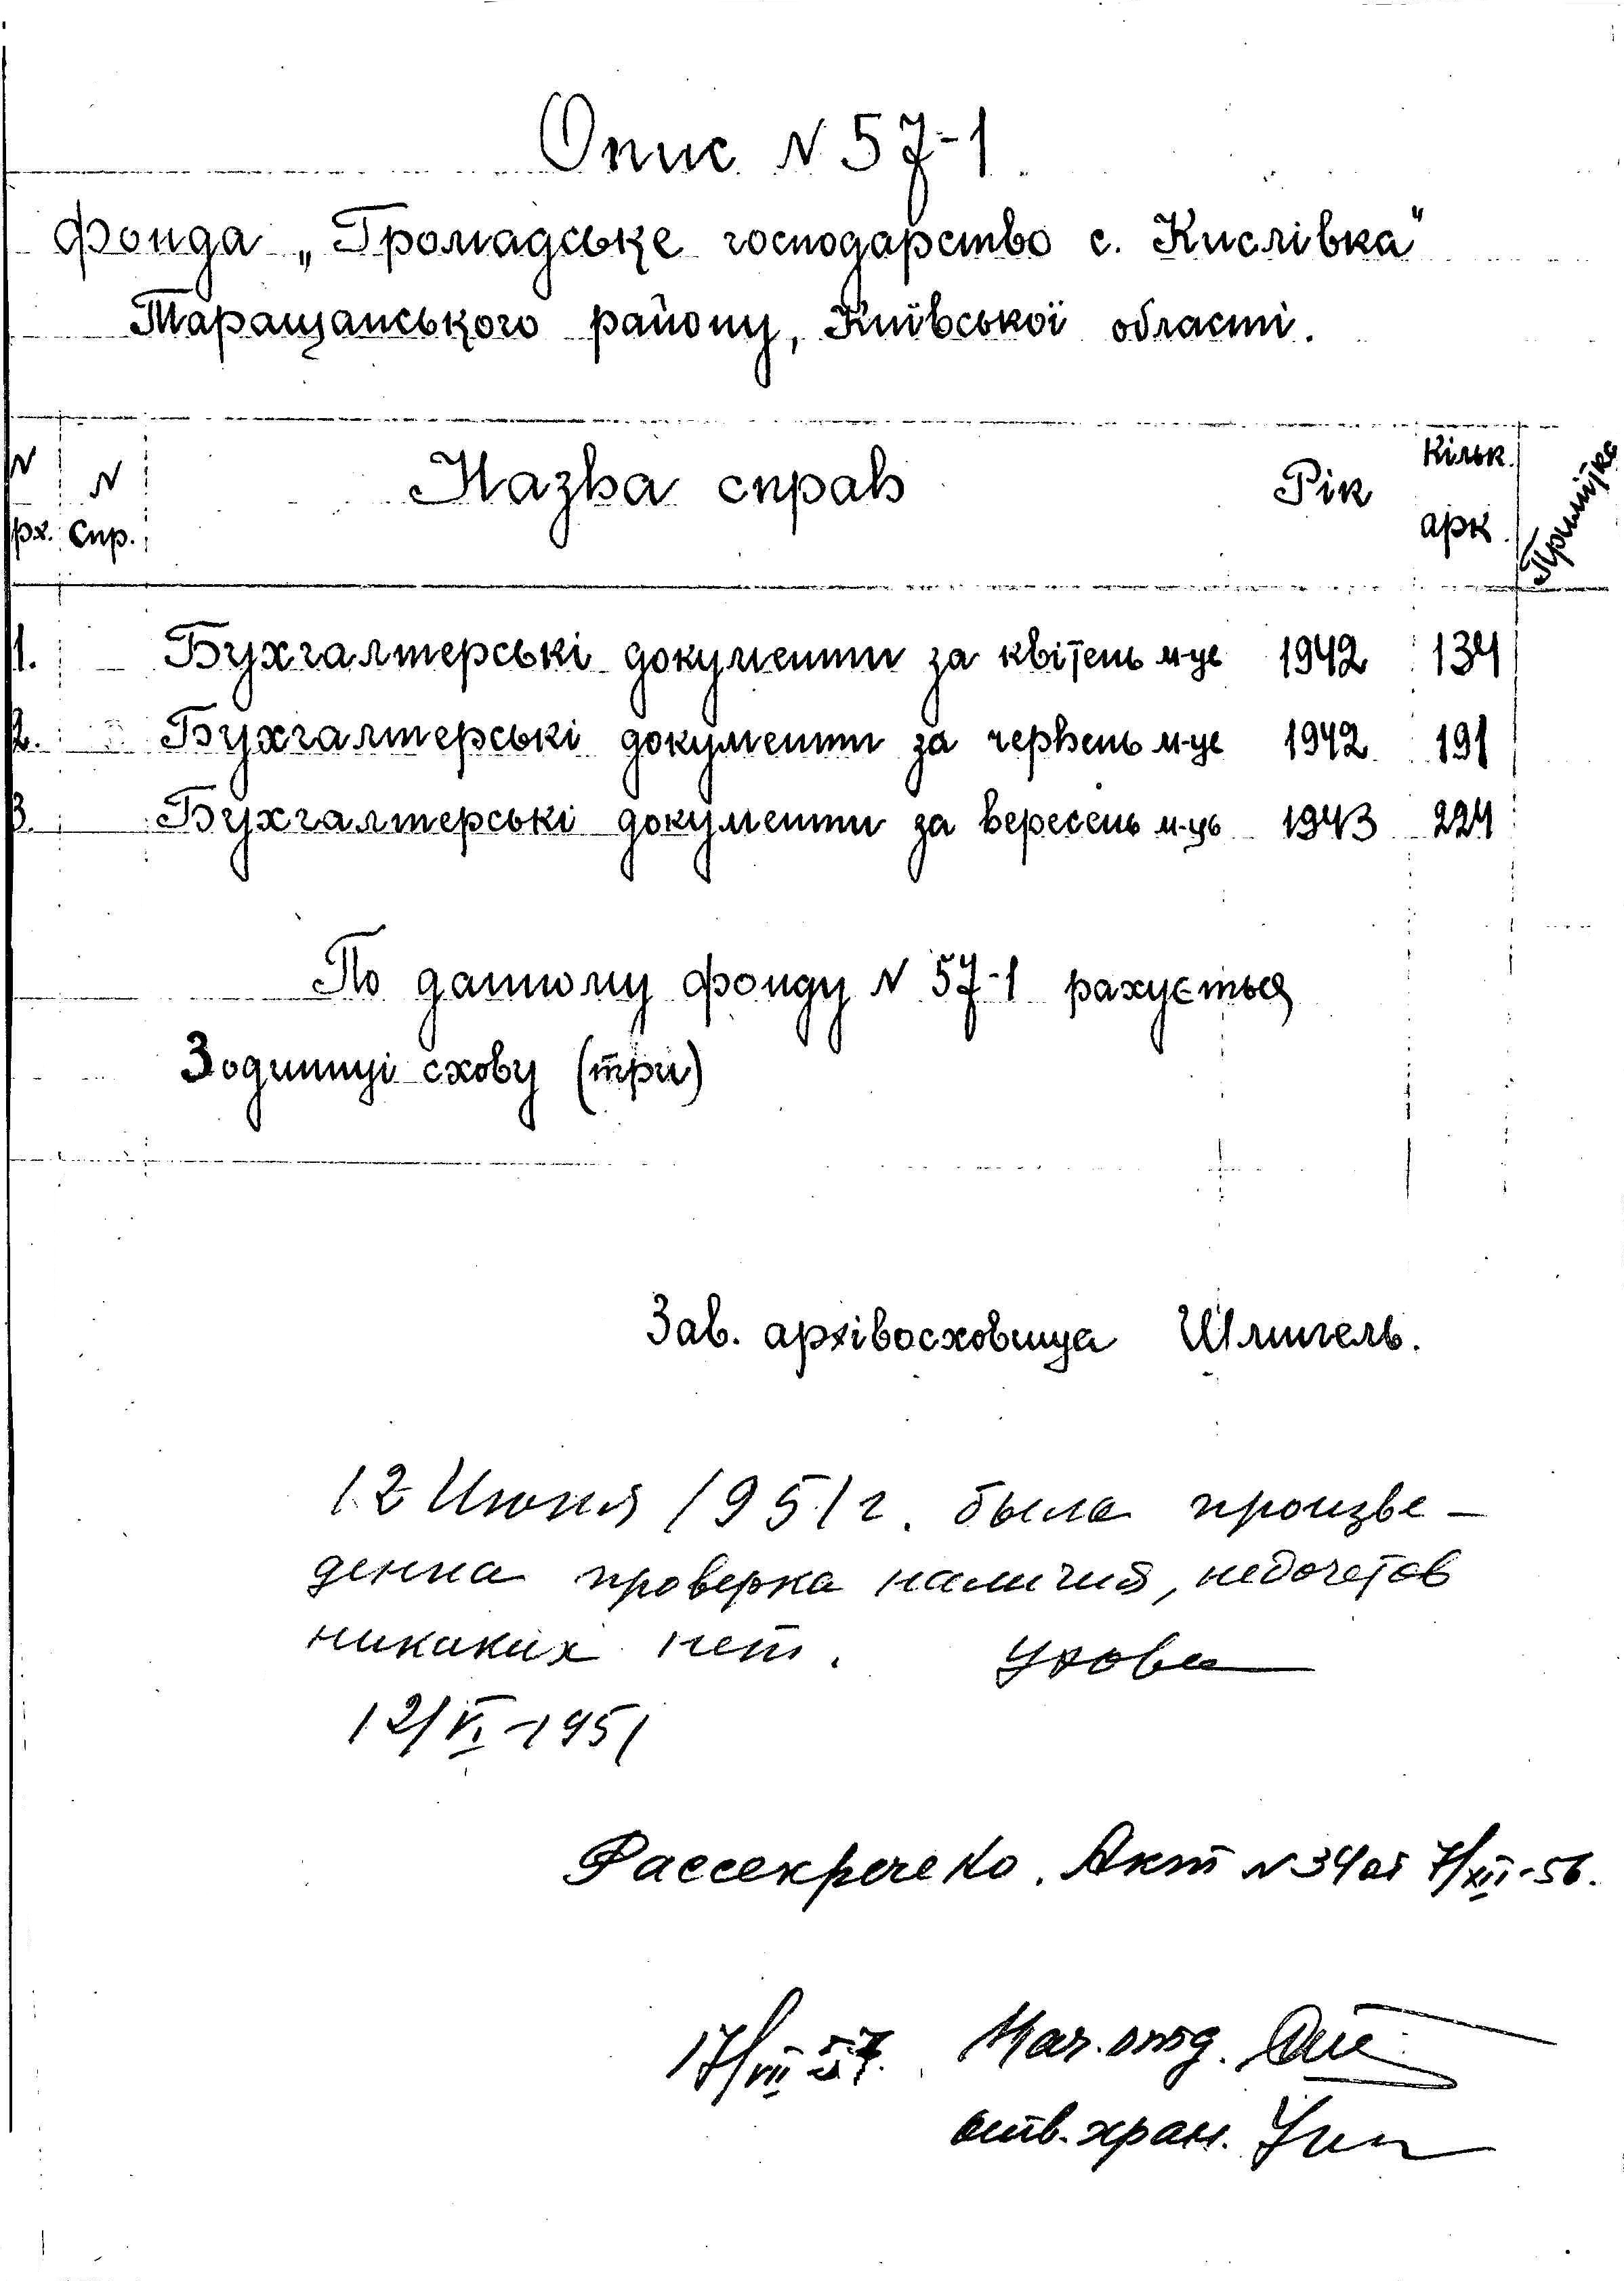 Опис N 57-1
фонда „Громадське господарство с. Кислівка"
Таращанського району, Київської області.
N рх. N Спр. Назва справ Рік Кільк. арк. Примітка
1. Бухгалтерські документи за квітень м-це 1942 134
2. Бухгалтерські документи за червень м-це 1942 191
3. Бухгалтерські документи за вересень м-ць 1943 224
По данному фонду N 57-1 рахується
3 одиниці схову (три)
Зав. архівосховища Шмигель.
12 Июня 1951 г. была произве-
денна проверка наличия, недочетов
никаких нет.
12/VI-1951
Рассекречено. Акт N 34 от 7/XII-56.
17/VII 57. Нач. отд.
отв. хран.